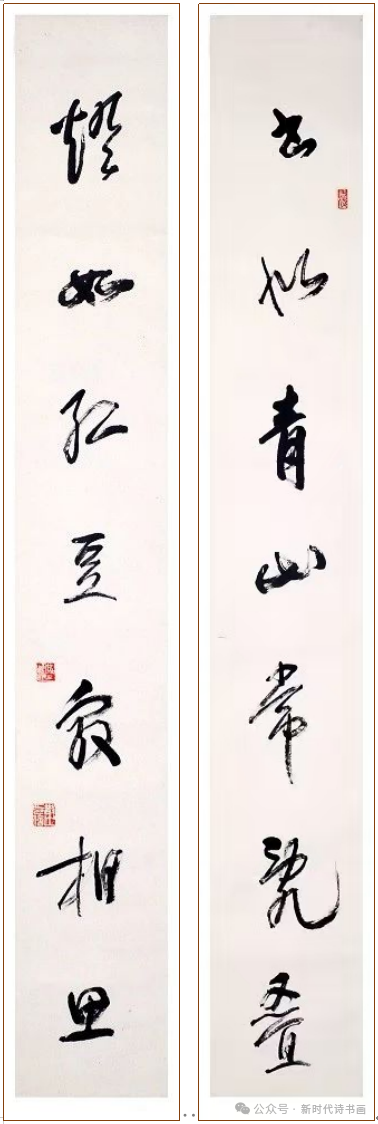 書似青山常亂叠
燈如紅豆最相思
公众号 · 新时代诗书画